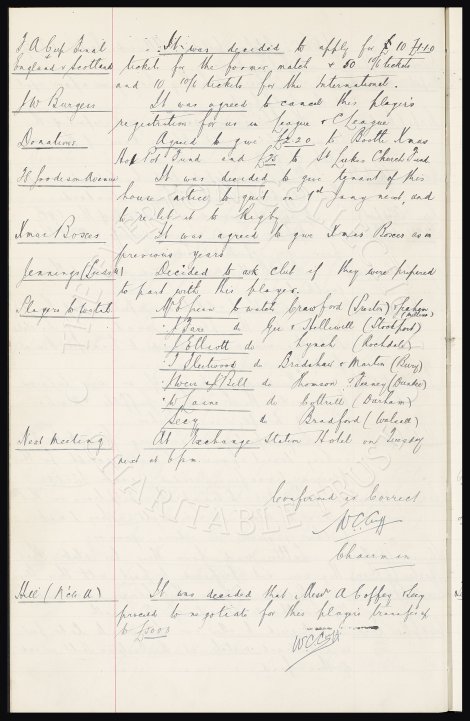 F A Cup Final It was decided to apply for £10
England v Scotland tickets for the former match & 50 10/6 tickets
and 10 10/6 tickets for the International.
J W Burgess It was agreed to cancel this player's
registration for us in League & C League
Donations Agreed to give to Bootle Xmas
Fund and to St Lukes Church Fund
Goodison Avenue It was decided to give tenant of this
house notice to quit on 1st Jany next, and
to relet it to Rigby
Xmas Boxes It was agreed to give Xmas Boxes as in
previous years
Jennings (Leeds) Decided to ask club if they were prepared
to part with this player.
Players to watch to watch Crawford (Preston) &
do Gee & Holliwell (Stockport)
J Elliott do Lynch (Rochdale)
J Fleetwood do Bradshaw & Martin (Bury)
do Thomson (Dundee)
do Cottrill (Durham)
Secy do Bradford (Walsall)
Next Meeting At Exchange Station Hotel on Tuesday
next at 6 pm
Confirmed as Correct
W C Cuff
Chairman
It was decided that Messrs A Coffey & Secy
proceed to negotiate for this players transfer
to £3000
W C Cuff
CHARITABLE TRUST